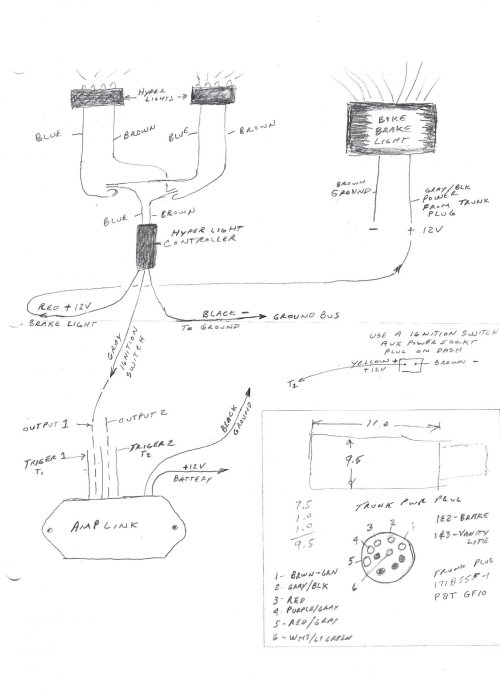 HYPER
LIGHTS
BLUE
BROWN
BLUE
BROWN
BIKE
BRAKE
LIGHT
BROWN
GROUND
GRAY/BLK
POWER
FROM TRUNK
PLUG
- + 12V
BLUE
BROWN
HYPER LIGHT
CONTROLLER
RED + 12V
BRAKE LIGHT
BLACK -
TO GROUND
GROUND BUS
GRAY
IGNITION
SWITCH
USE A IGNITION SWITCH
AUX POWER SOCKT
PLUG ON DASH
YELLOW +
+12V
BROWN -
T1
OUTPUT 1
OUTPUT 2
TRIGER 1
T1
TRIGER 2
T2
BLACK
GROUND
+12V
BATTERY
AMPLINK
11.0
9.5
7.5
1.0
1.0
9.5
TRUNK PWR PLUG
1
2
3
4
5
6
1&2-BRAKE
1&3-VANITY
LITE
TRUNK PLUG
PBT GF10
1- BRWN-GRN
2- GRAY/BLK
3- RED
4- PURPLE/GRAY
5- RED/GRAY
6- WHT/LTGREEN